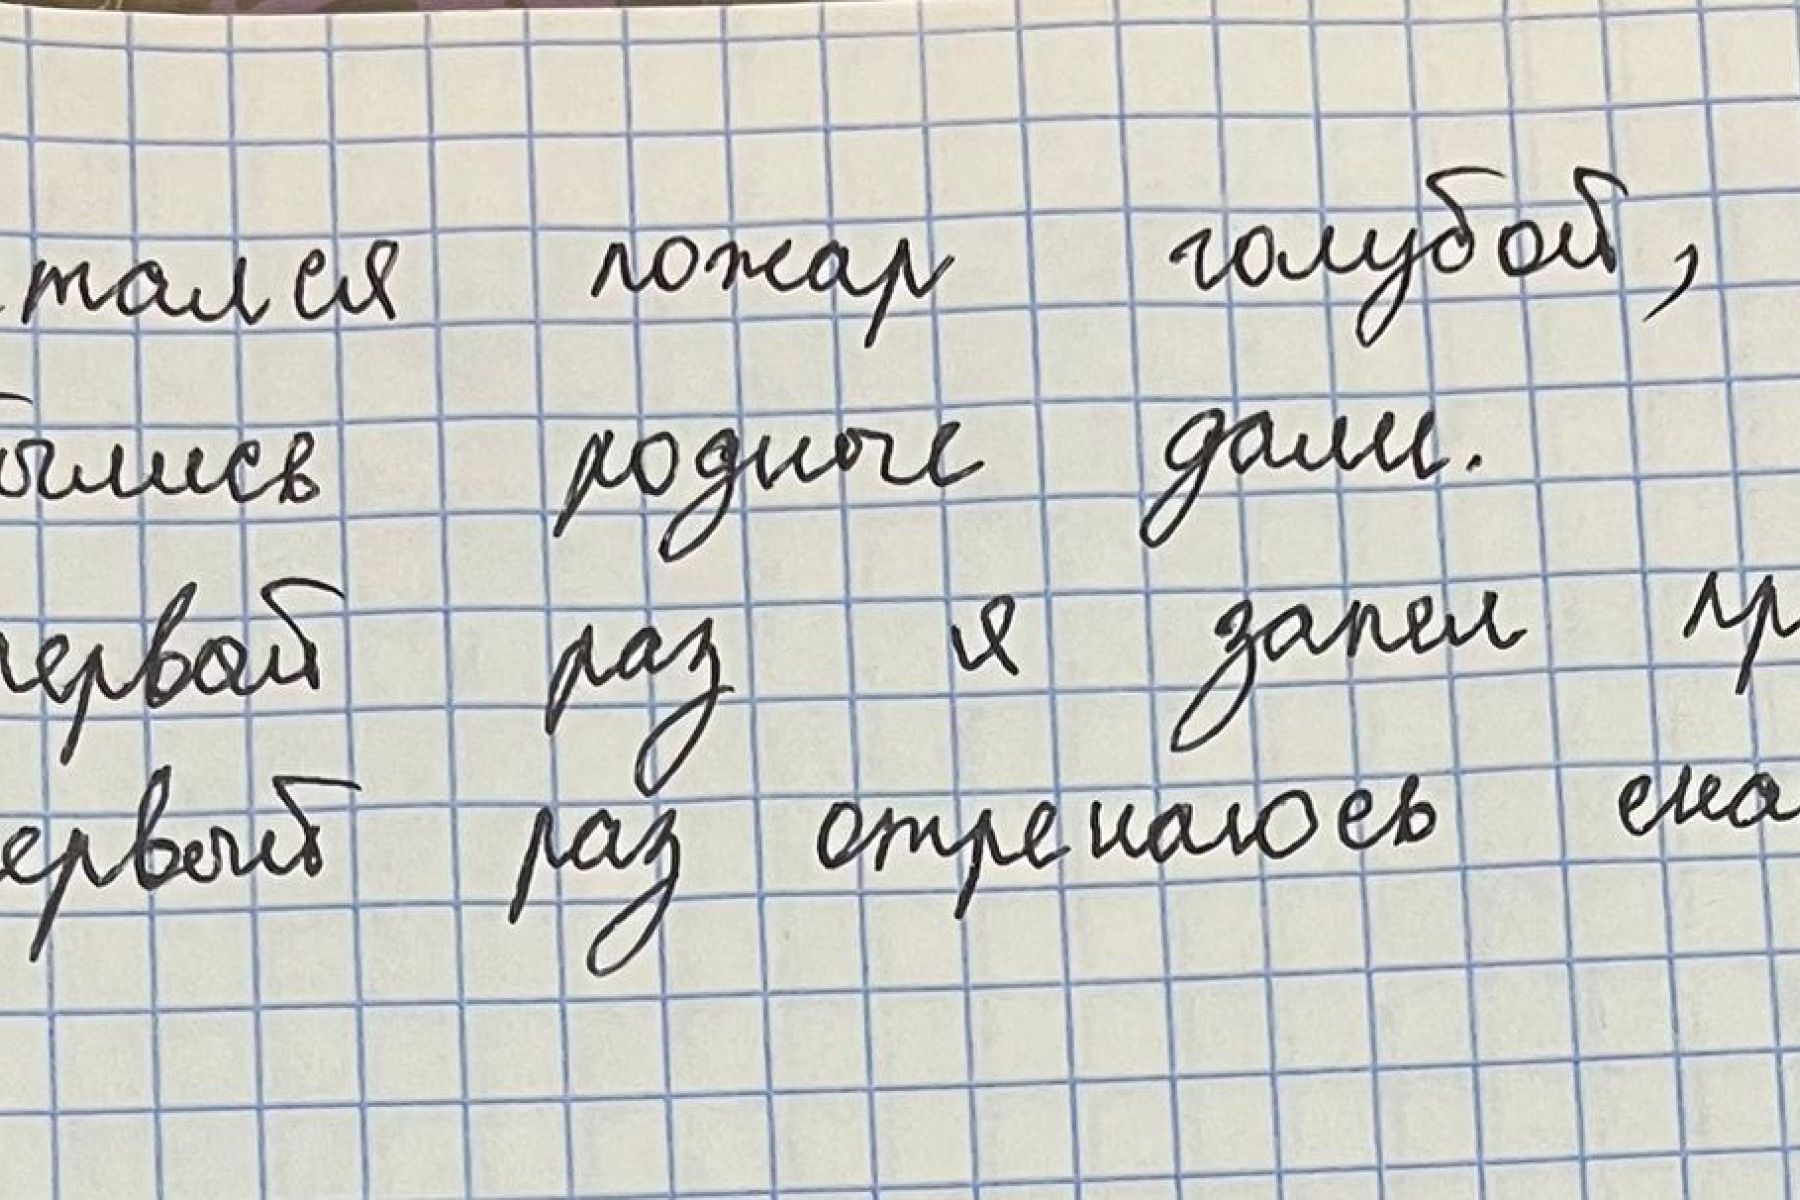 тался пожар голубой,
былись родные дали.
первой раз я запел пр
ервый раз отрекаюсь ска